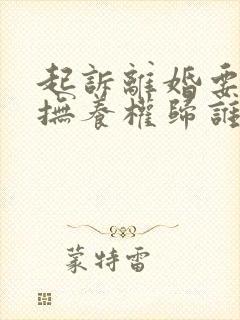 起訴離婚要
撫養權歸誰
蒙特雷